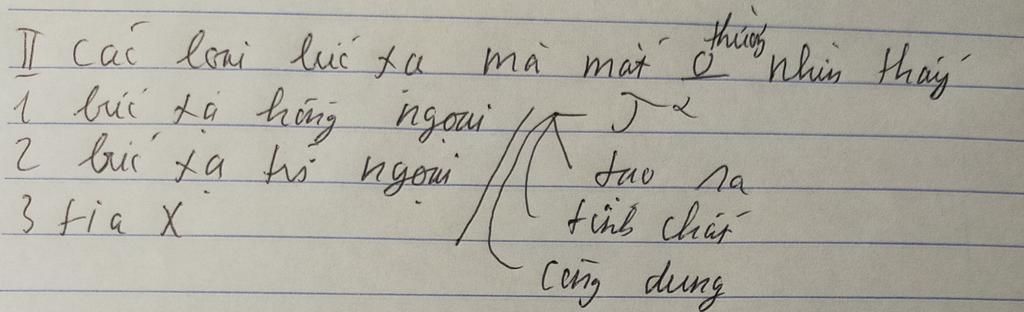 II Các loại bức xạ mà mắt o thường nhìn thấy
1 bức xạ hồng ngoại
2 bức xạ tử ngoại tạo ra
3 tia X tính chất
công dụng